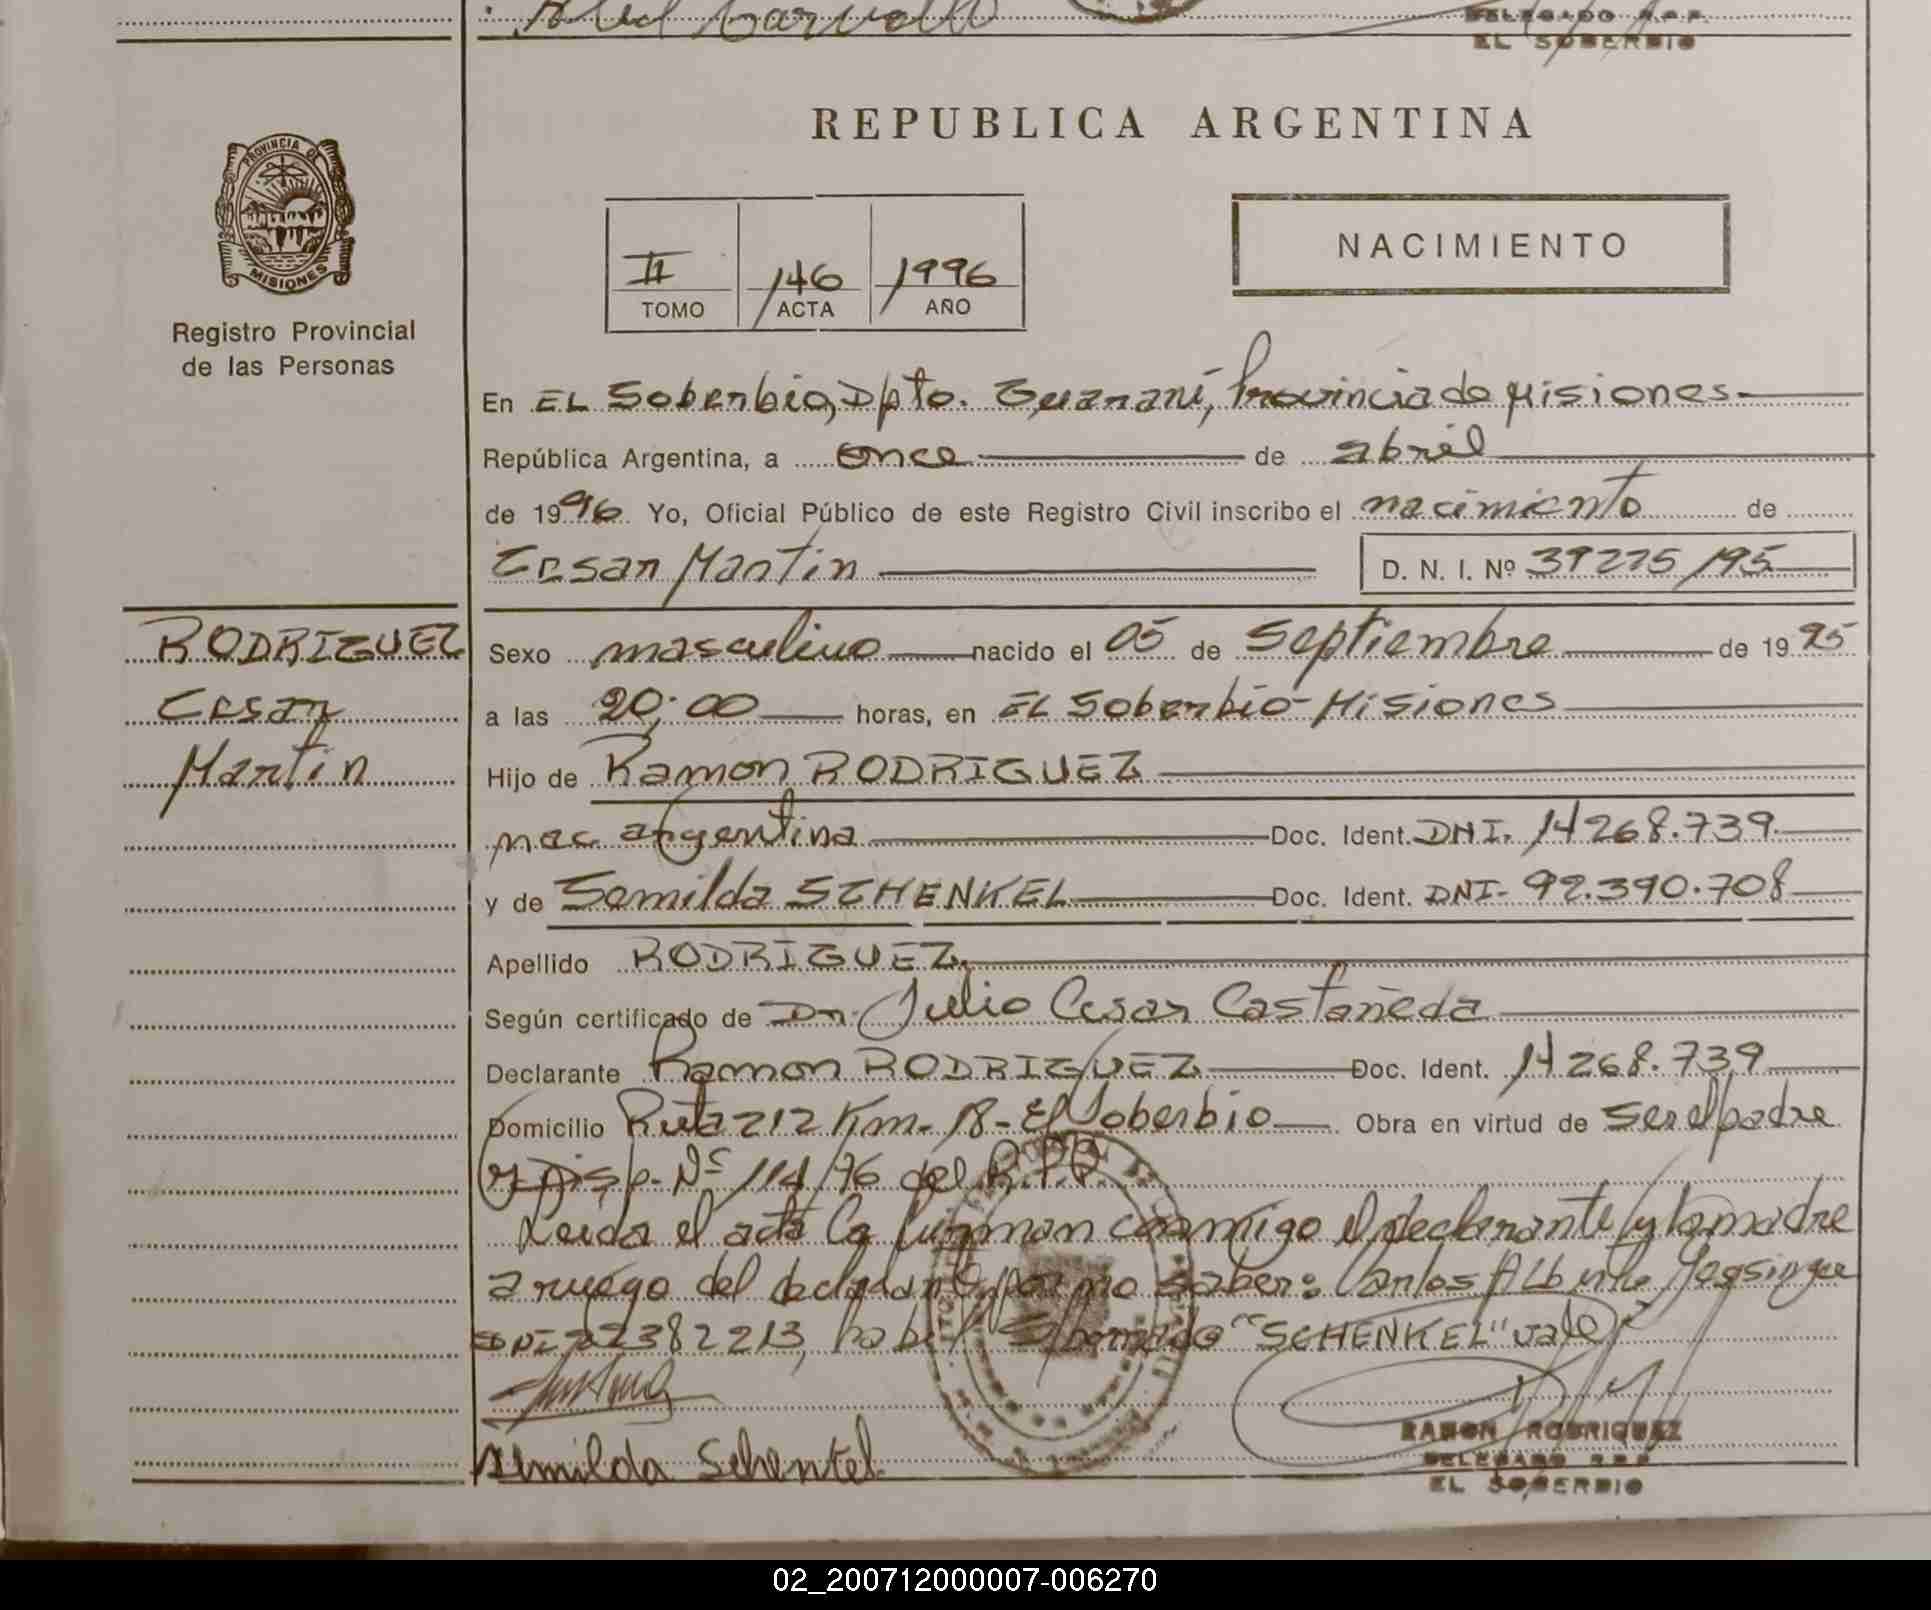 DELEGADO R.P.P.
EL SOBERBIO
REPUBLICA ARGENTINA
PROVINCIA DE
MISIONES
Registro Provincial
de las Personas
II
146
1996
TOMO
ACTA
AÑO
NACIMIENTO
En EL Soberbio, Dpto. Guaraní, Provincia de Misiones
República Argentina, a once de abril
de 1996 Yo, Oficial Público de este Registro Civil inscribo el nacimiento de
Cesar Martin
D. N. I. Nº 39225195
RODRIGUEZ
Cesar
Martin
Sexo masculino nacido el 05 de Septiembre de 1995
a las 20:00 horas, en EL Soberbio-Misiones
Hijo de Ramon RODRIGUEZ
nac. argentina Doc. Ident. DNI. 14268.739
y de Semilda SCHENKEL Doc. Ident. DNI- 92.390.708
Apellido RODRIGUEZ
Según certificado de Dr. Julio Cesar Castañeda
Declarante Ramon RODRIGUEZ Doc. Ident. 14268.739
Domicilio Ruta 212 Km-18-El Soberbio Obra en virtud de ser el padre
y Disp. Nº 114/96 del R.P.P.
Leida el acta la firman conmigo el declarante y la madre
a ruego del declarante por no saber: Carlos Alberto
DNI 22382213, "SCHENKEL" vale
Semilda Schenkel
RAMON RODRIGUEZ
DELEGADO R.P.P.
EL SOBERBIO
02_200712000007-006270